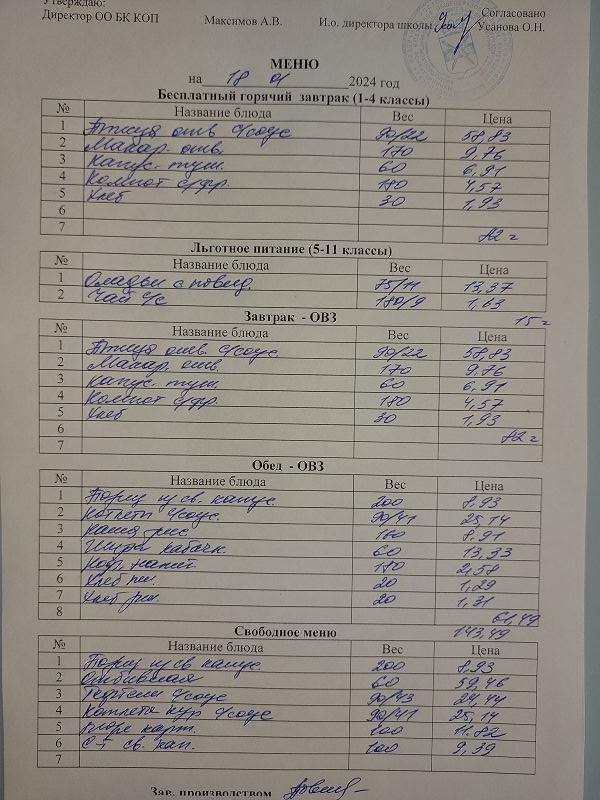 Утверждаю: Согласовано
Директор ОО БК КОП Максимов А.В. И.о. директора школы Усанова О.Н.
МЕНЮ
на 18 01 2024 год
Бесплатный горячий завтрак (1-4 классы)
№ Название блюда Вес Цена
1 Птица отв. с/соус 90/22 58,83
2 Макар. отв. 170 9,76
3 Капус. туш. 60 6,91
4 Компот с/фр. 180 4,57
5 Хлеб 30 1,93
6
7 82 =
Льготное питание (5-11 классы)
№ Название блюда Вес Цена
1 Оладьи с повид. 75/11 13,37
2 Чай с/с 180/9 1,63
15 =
Завтрак - ОВЗ
№ Название блюда Вес Цена
1 Птица отв. с/соус 90/22 58,83
2 Макар. отв. 170 9,76
3 Капус. туш. 60 6,91
4 Компот с/фр. 180 4,57
5 Хлеб 30 1,93
6
7 82 =
Обед - ОВЗ
№ Название блюда Вес Цена
1 Борщ из св. капус. 200 8,93
2 Котлеты с/соус. 90/41 25,14
3 Каша рис. 180 8,91
4 Икра кабачк. 60 13,33
5 напит. 180 2,58
6 Хлеб пш. 20 1,29
7 Хлеб рж. 20 1,31
8 61,49
Свободное меню 143,49
№ Название блюда Вес Цена
1 Борщ из св. капус. 200 8,93
2 Отбивная 60 59,46
3 Тефтели с/соус 90/43 24,44
4 Котлета кур с/соус 90/41 25,14
5 Пюре карт. 100 11.82
6 С-т св. кап. 100 9,39
7
Зав. производством